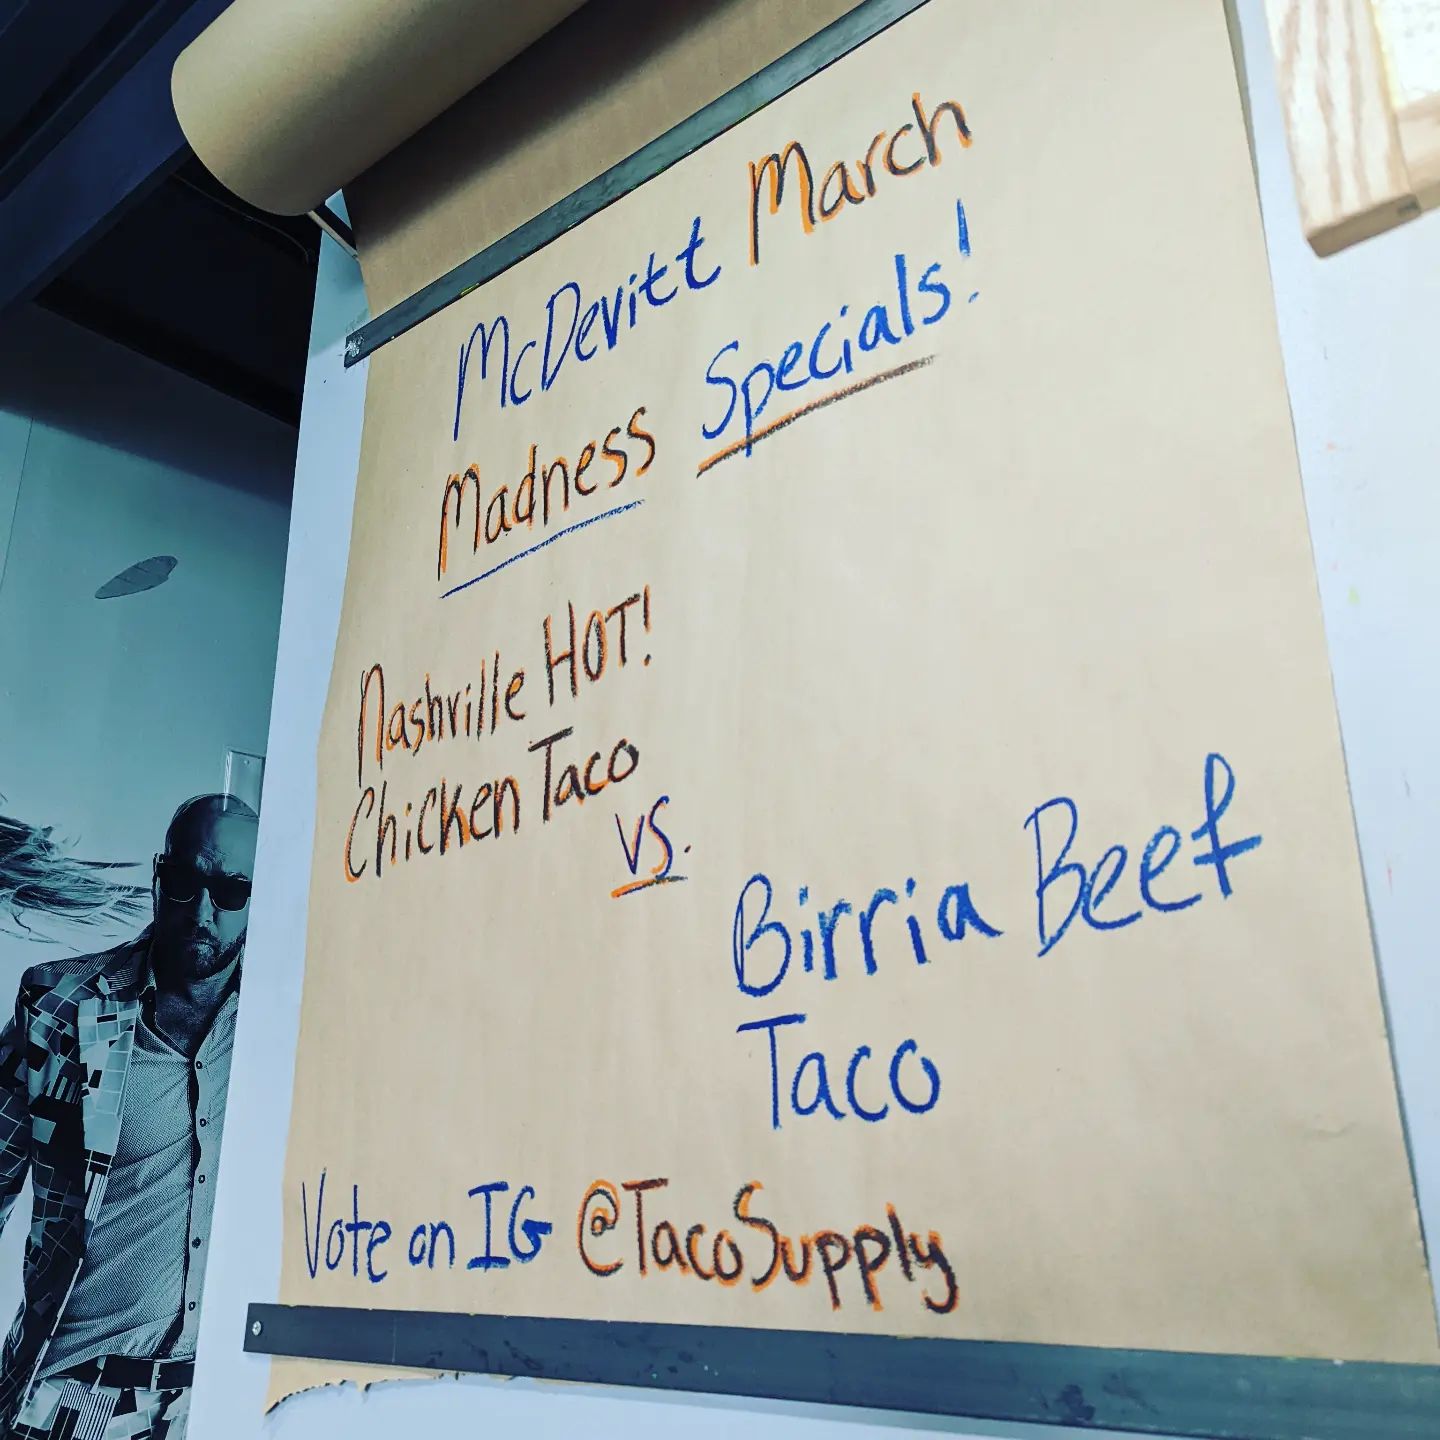 McDevitt March
Madness Specials!
Nashville HOT!
Chicken Taco
vs.
Birria Beef
Taco
Vote on IG @TacoSupply